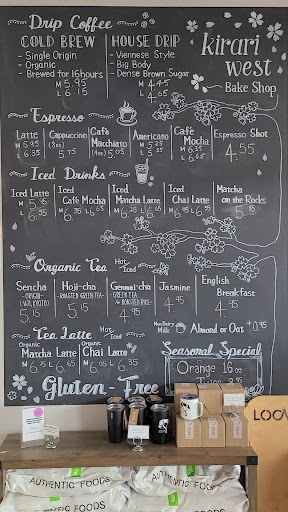 Drip Coffee
COLD BREW
- Single Origin
- Organic
- Brewed for 16hours
M 5.95
L 6.15
HOUSE DRIP
- Viennese Style
- Big Body
- Dense Brown Sugar
M 4.45
L 4.65
kirari
west
Bake Shop
Espresso
Latte
M 5.95
L 6.35
Cappuccino
(8oz)
5.75
Café
Macchiato
(4oz) 5.05
Americano
M 5.25
L 5.35
Café
Mocha
M 6.35
L 6.65
Espresso Shot
4.55
Iced Drinks
Iced Latte
M 5.95
L 6.55
Iced
Café Mocha
Iced
Matcha Latte
Iced
Chai Latte
Matcha
on the Rocks
5.15
Organic Tea
Hot
Iced
Sencha
5.15
Hoji-cha
- ROASTED GREEN TEA -
5.15
Genmai-cha
- GREEN TEA
& ROASTED RICE -
4.95
Jasmine
4.95
English
Breakfast
4.95
Tea Latte
Hot
Iced
Non Dairy
Milk
Almond or Oat +0.95
Organic
Matcha Latte
M 6.05 L 6.65
Organic
Chai Latte
Seasonal Special
Orange 16 oz
Juice
Gluten-Free
LOO
AUTHENTIC FOODS
AUTHENTIC FOODS